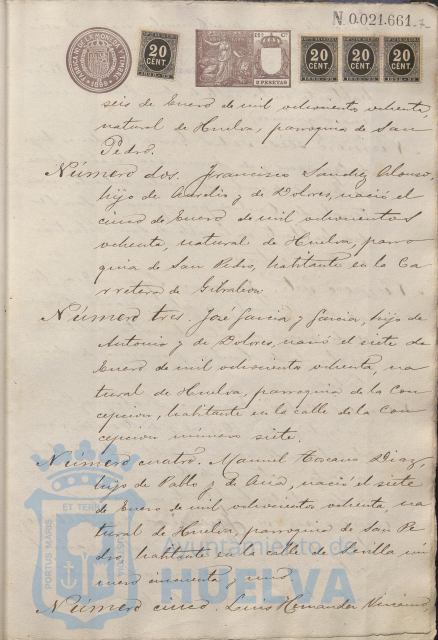 N. 0.021.661
FABRICA DE LA MONEDA Y TIMBRE
1899
20
CENT.
1898-99
2 PESETAS
20
CENT.
1898-99
20
CENT.
1898-99
20
CENT.
1898-99
seis de Enero de mil ochocientos ochenta,
natural de Huelva, parroquia de San
Pedro.
Número dos. Francisco Sanchez Alonso,
hijo de Aurelio y de Dolores, nació el
cinco de Enero de mil ochocientos
ochenta, natural de Huelva, parro
quia de San Pedro, habitante en la Ca
rretera de Gibraleon
Número tres. José Garcia y Garcia, hijo de
Antonio y de Dolores, nació el siete de
Enero de mil ochocientos ochenta, na
tural de Huelva, parroquia de la Con
cepcion, habitante en la calle de la Con
cepcion número siete.
Número cuatro. Manuel Toscano Diaz,
hijo de Pablo y de Ana, nació el siete
de Enero de mil ochocientos ochenta, na
tural de Huelva, parroquia de San Pe
dro, habitante en la calle de Sevilla nú
mero cincuenta y uno.
Número cinco. Luis Hernandez
PORTUS MARIS
ET TERR
Ayuntamiento de
HUELVA